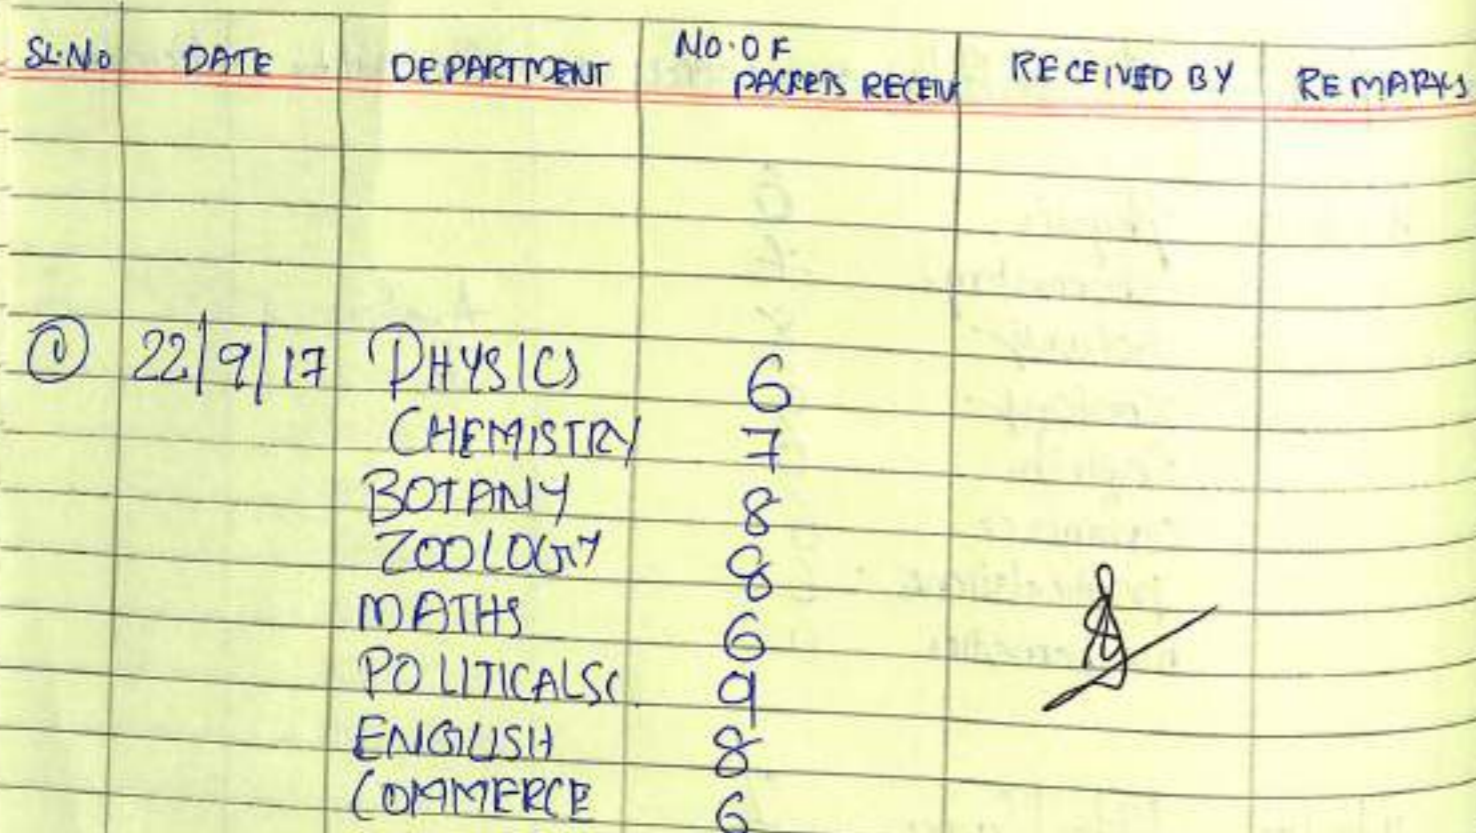 SL.No DATE DEPARTMENT NO.OF PACKETS RECEIV RECEIVED BY REMARKS
① 22/9/17 PHYSICS 6
CHEMISTRY 7
BOTANY 8
ZOOLOGY 8
MATHS 6
POLITICALSC 9
ENGLISH 8
COMMERCE 6